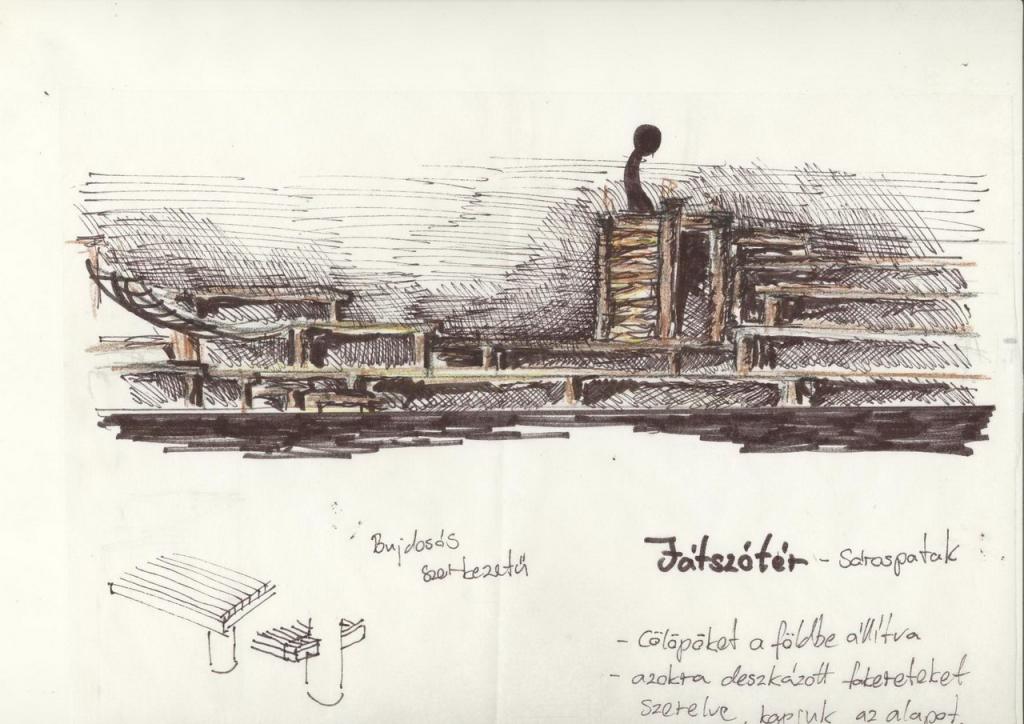 Bujdosós
szerkezetű
Játszótér - Sárospatak
- Cölöpöket a földbe állítva
- azokra deszkázott fakereteket
szerelve, kapjuk az alapot.